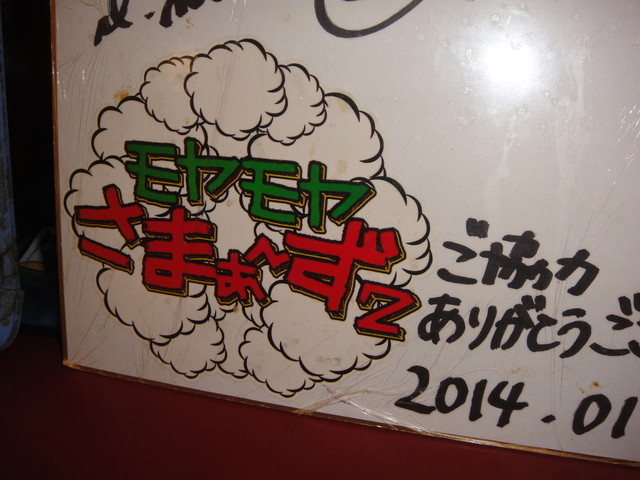 モヤモヤ
さまぁ~ず2
ご協力
ありがとうご
2014.01